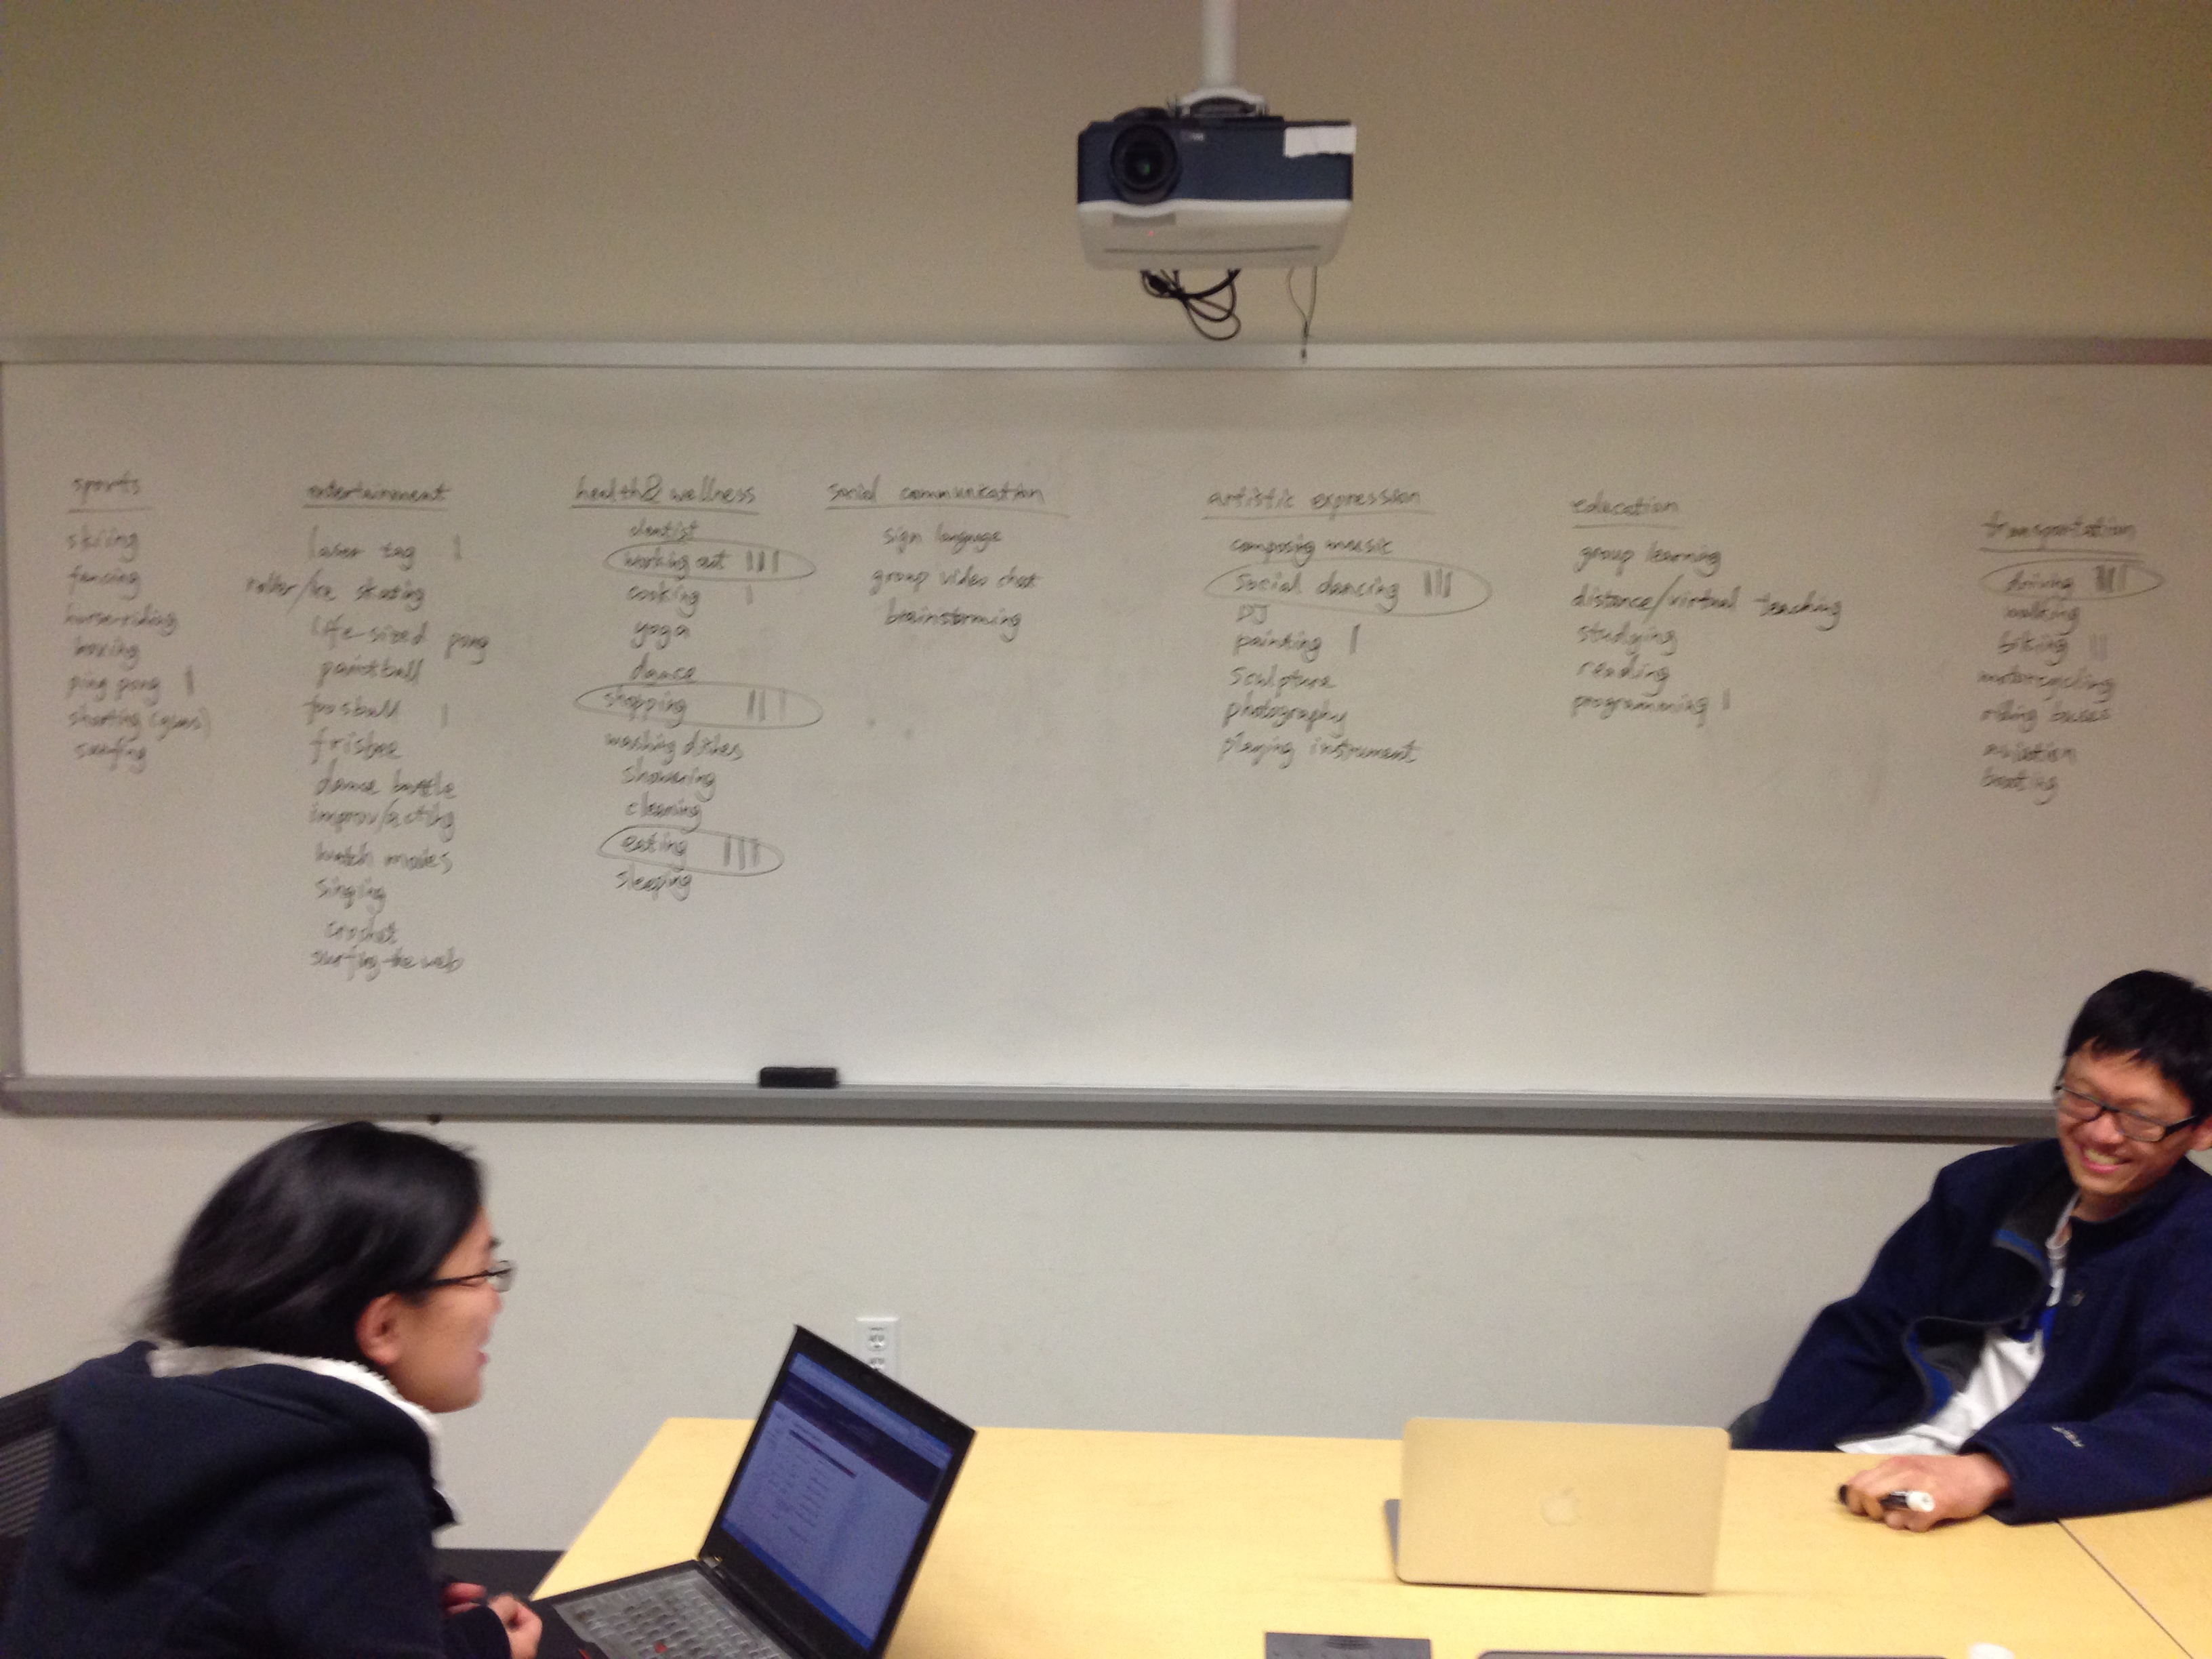 sports
skiing
fencing
horse-riding
boxing
ping pong |
shooting (guns)
surfing
entertainment
laser tag |
roller/ice skating
life-sized pong
paintball
foosball |
frisbee
dance battle
improv/acting
watch movies
singing
crochet
surfing the web
health & wellness
dentist
working out |||
cooking |
yoga
dance
shopping |||
washing dishes
showering
cleaning
eating |||
sleeping
social communication
sign language
group video chat
brainstorming
artistic expression
composing music
social dancing |||
DJ
painting |
sculpture
photography
playing instrument
education
group learning
distance/virtual teaching
studying
reading
programming |
transportation
driving ||||
walking
biking ||
motorcycling
riding buses
aviation
boating